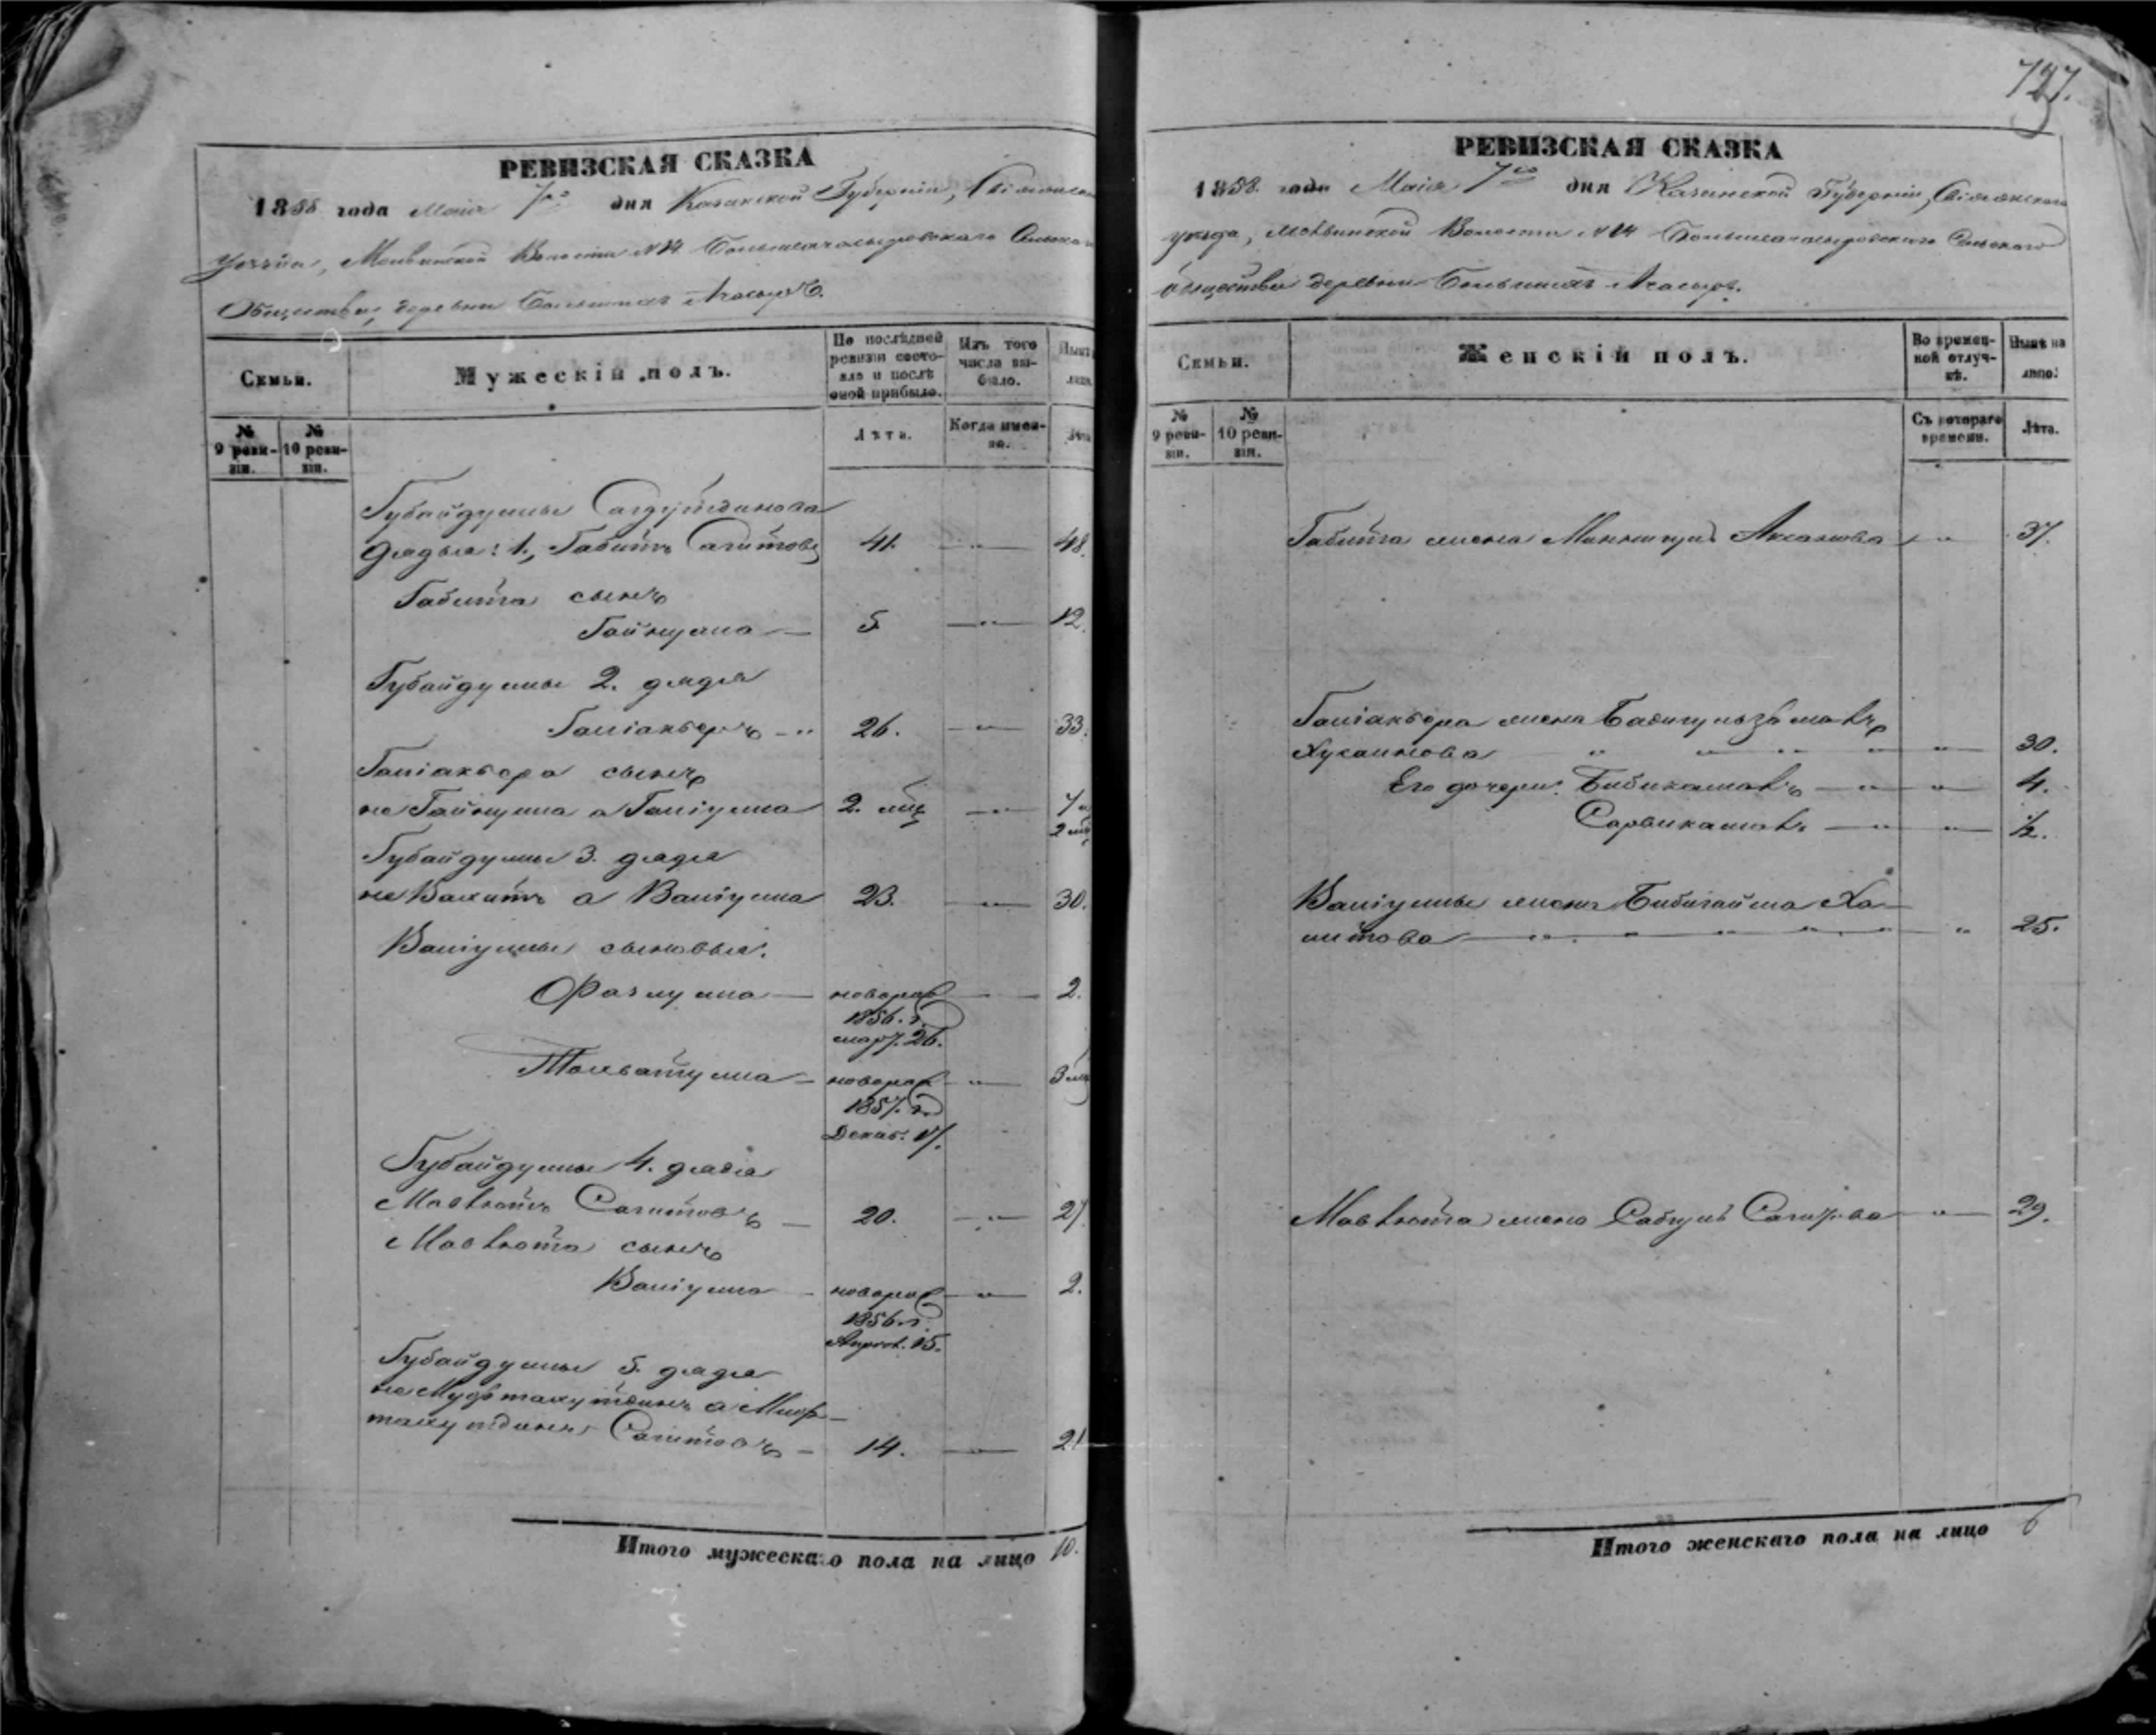 РЕВИЗСКАЯ СКАЗКА
1858 года Маія 7го дня Казанской Губерніи,
уезда, Волости №14 Большеачасыровскаго Сельскаго
Общества, деревни Большихъ Ачасыръ.
Семьи.
Мужескій полъ.
По послѣдней ревизіи состояло и послѣ оной прибыло.
Изъ того числа выбыло.
№ 9 ревизіи.
№ 10 ревизіи.
Лѣта.
Когда именно.
Губайдуллы Сагдутдинова
дядья: 1, Габитъ Сагитовъ 41. — " — 48.
Габита сынъ
Гайнулла — 5 — " — 12.
Губайдуллы 2. дядя
Галіакберъ — " 26. — " — 33.
Галіакбера сынъ
не Гайнулла а Галіулла 2. мц — " — 7
2 мц
Губайдуллы 3. дядя
не Валитъ а Валіулла 23. — " — 30.
Валіуллы сыновья:
Фазлулла — новорож — " — 2.
1856. г.
мар. 26.
новорож — " — 3 мц
1857. г.
Декаб. 17.
Губайдуллы 4. дядя
Мавлютъ Сагитовъ — 20. — " — 27
Мавлюта сынъ
Валіулла — новорож — " — 2.
1856. г.
Апрѣл. 15.
Губайдуллы 5. дядя
не а
Сагитовъ — 14. — " — 21
Итого мужескаго пола на лицо 10.
727.
РЕВИЗСКАЯ СКАЗКА
1858. года Маія 7го дня Казанской Губерніи, Свіяжскаго
уѣзда, Волости №14 Большеачасыровскаго Сельскаго
общества деревни Большихъ Ачасыръ.
Семьи.
Женскій полъ.
Во временной отлучкѣ.
Нынѣ на лицо.
№ 9 ревизіи.
№ 10 ревизіи.
Съ котораго времени.
Лѣта.
Габита жена — " 37.
Галіакбера жена
Хусаинова " — " — " — " — 30.
Его дочери: Бибикамалъ — " — " — 4.
Сарвикамалъ — " — " — ½.
Валіуллы жена Ха-
литова — " — " — " — " — " 25.
Мавлюта жена Сагитова — " — 29.
Итого женскаго пола на лицо 6